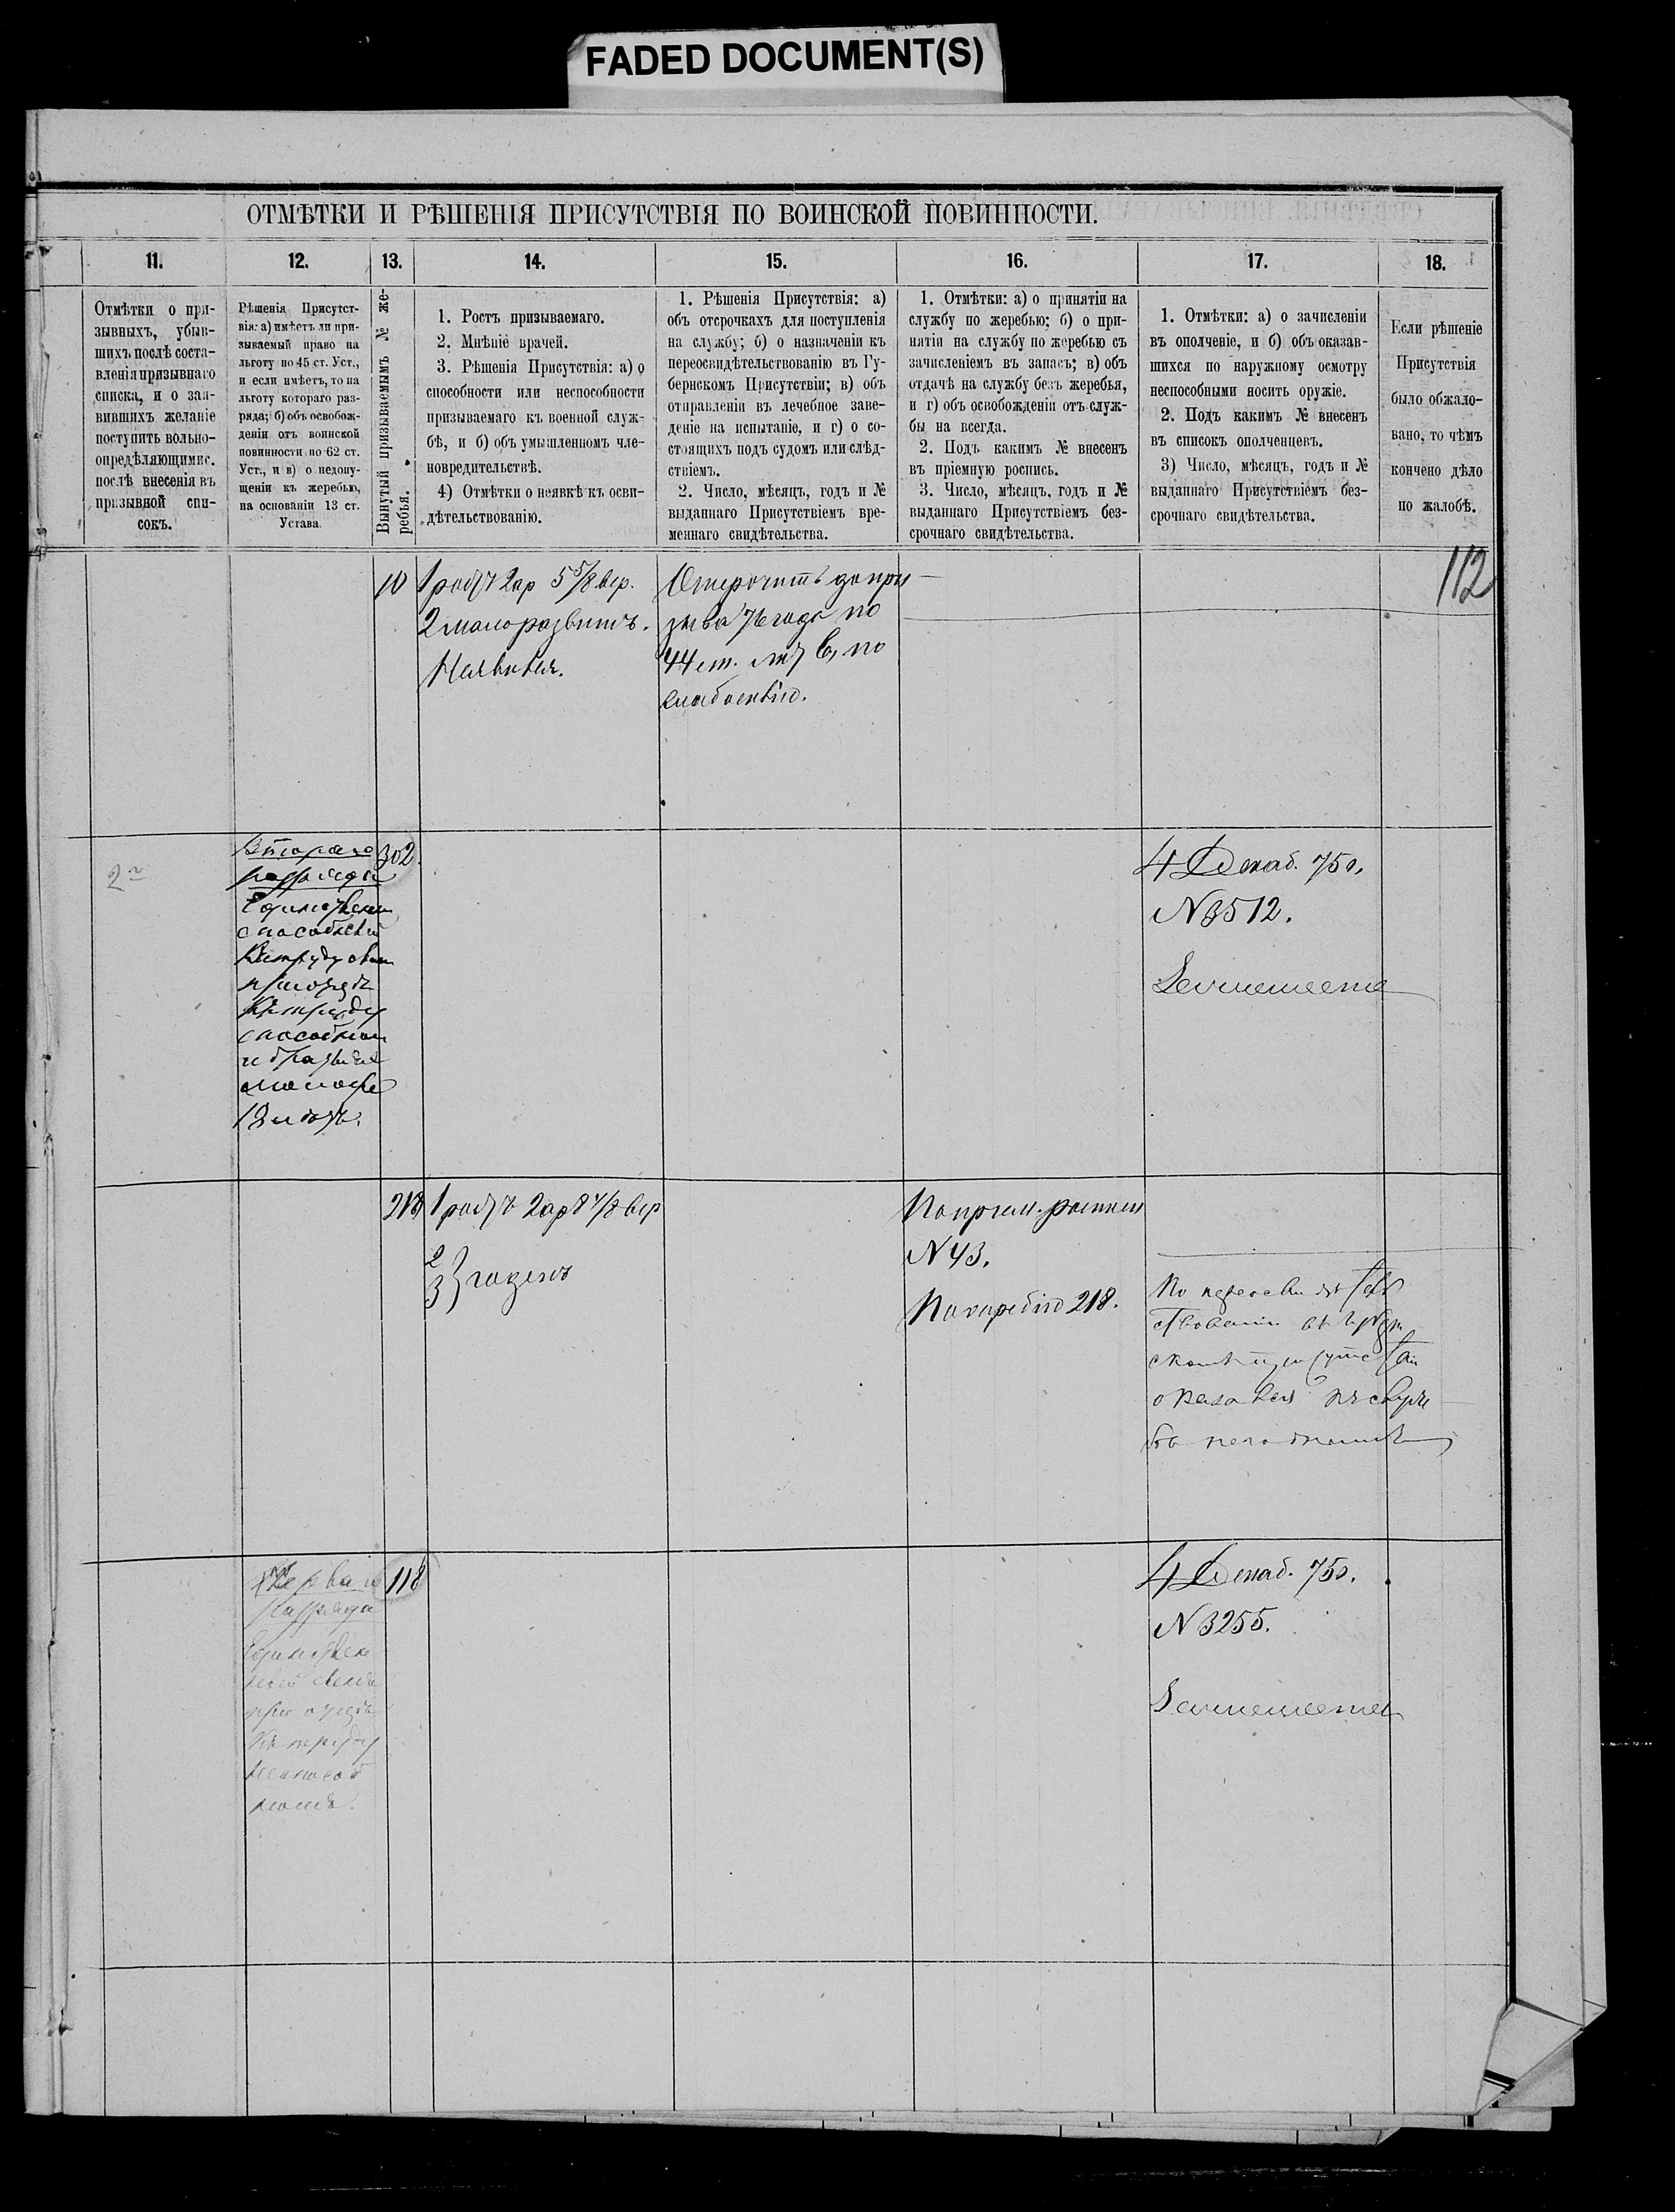 FADED DOCUMENT(S)
ОТМѢТКИ И РѢШЕНІЯ ПРИСУТСТВІЯ ПО ВОИНСКОЙ ПОВИННОСТИ.
11.
12.
13.
14.
15.
16.
17.
18.
Отмѣтки о при-
зывныхъ, убыв-
шихъ послѣ соста-
вленія призывнаго
списка, и о зая-
вившихъ желаніе
поступить вольно-
опредѣляющимис.
послѣ внесенія въ
призывной спи-
сокъ.
Рѣшенія Присутст-
вія: а) имѣетъ ли при-
зываемый право на
льготу по 45 ст. Уст.,
и если имѣетъ, то на
льготу котораго раз-
ряда; б) объ освобож-
деніи отъ воинской
повинности по 62 ст.
Уст., и в) о недопу-
щеніи къ жеребью,
на основаніи 13 ст.
Устава.
Вынутый призываемымъ № же-
ребья.
1. Ростъ призываемаго.
2. Мнѣніе врачей.
3. Рѣшенія Присутствія: а) о
способности или неспособности
призываемаго къ военной служ-
бѣ, и б) объ умышленномъ чле-
новредительствѣ.
4) Отмѣтки о неявкѣ къ осви-
дѣтельствованію.
1. Рѣшенія Присутствія: а)
объ отсрочкахъ для поступленія
на службу; б) о назначеніи къ
переосвидѣтельствованію въ Гу-
бернскомъ Присутствіи; в) объ
отправленіи въ лечебное заве-
деніе на испытаніе, и г) о со-
стоящихъ подъ судомъ или слѣд-
ствіемъ.
2. Число, мѣсяцъ, годъ и №
выданнаго Присутствіемъ вре-
меннаго свидѣтельства.
1. Отмѣтки: а) о принятіи на
службу по жеребью; б) о при-
нятіи на службу по жеребью съ
зачисленіемъ въ запасъ; в) объ
отдачѣ на службу безъ жеребья,
и г) объ освобожденіи отъ служ-
бы на всегда.
2. Подъ какимъ № внесенъ
въ пріемную роспись.
3. Число, мѣсяцъ, годъ и №
выданнаго Присутствіемъ без-
срочнаго свидѣтельства.
1. Отмѣтки: а) о зачисленіи
въ ополченіе, и б) объ оказав-
шихся по наружному осмотру
неспособными носить оружіе.
2. Подъ какимъ № внесенъ
въ списокъ ополченцевъ.
3) Число, мѣсяцъ, годъ и №
выданнаго Присутствіемъ без-
срочнаго свидѣтельства.
Если рѣшеніе
Присутствія
было обжало-
вано, то чѣмъ
кончено дѣло
по жалобѣ.
112
10
1 ростъ 2 ар 5 5/8 вер.
2 малоразвитъ.
Неявился.
Отсрочить до при
зыва 76 года по
44 ст. лит в, по
слабости.
2
Втораго
разряда
Единствен
способный
къ труду
при отцѣ
къ труду
способномъ
и братьяхъ
моложе
18 лѣтъ.
302
4 Декаб. 75 г.
N 3512.
218
1 ростъ 2 ар 8 7/8 вер
2
3 } годенъ
По прием. росписи
N 43.
По жеребію 218.
По переосвидѣтель
ствованіи въ Губерн
скомъ присутствіи
оказался къ служ
бѣ негоднымъ
Перваго
разряда
Единствен
ный сынъ
при отцѣ
къ труду
неспособ
номъ.
118
4 Декаб. 75 г.
N 3255.